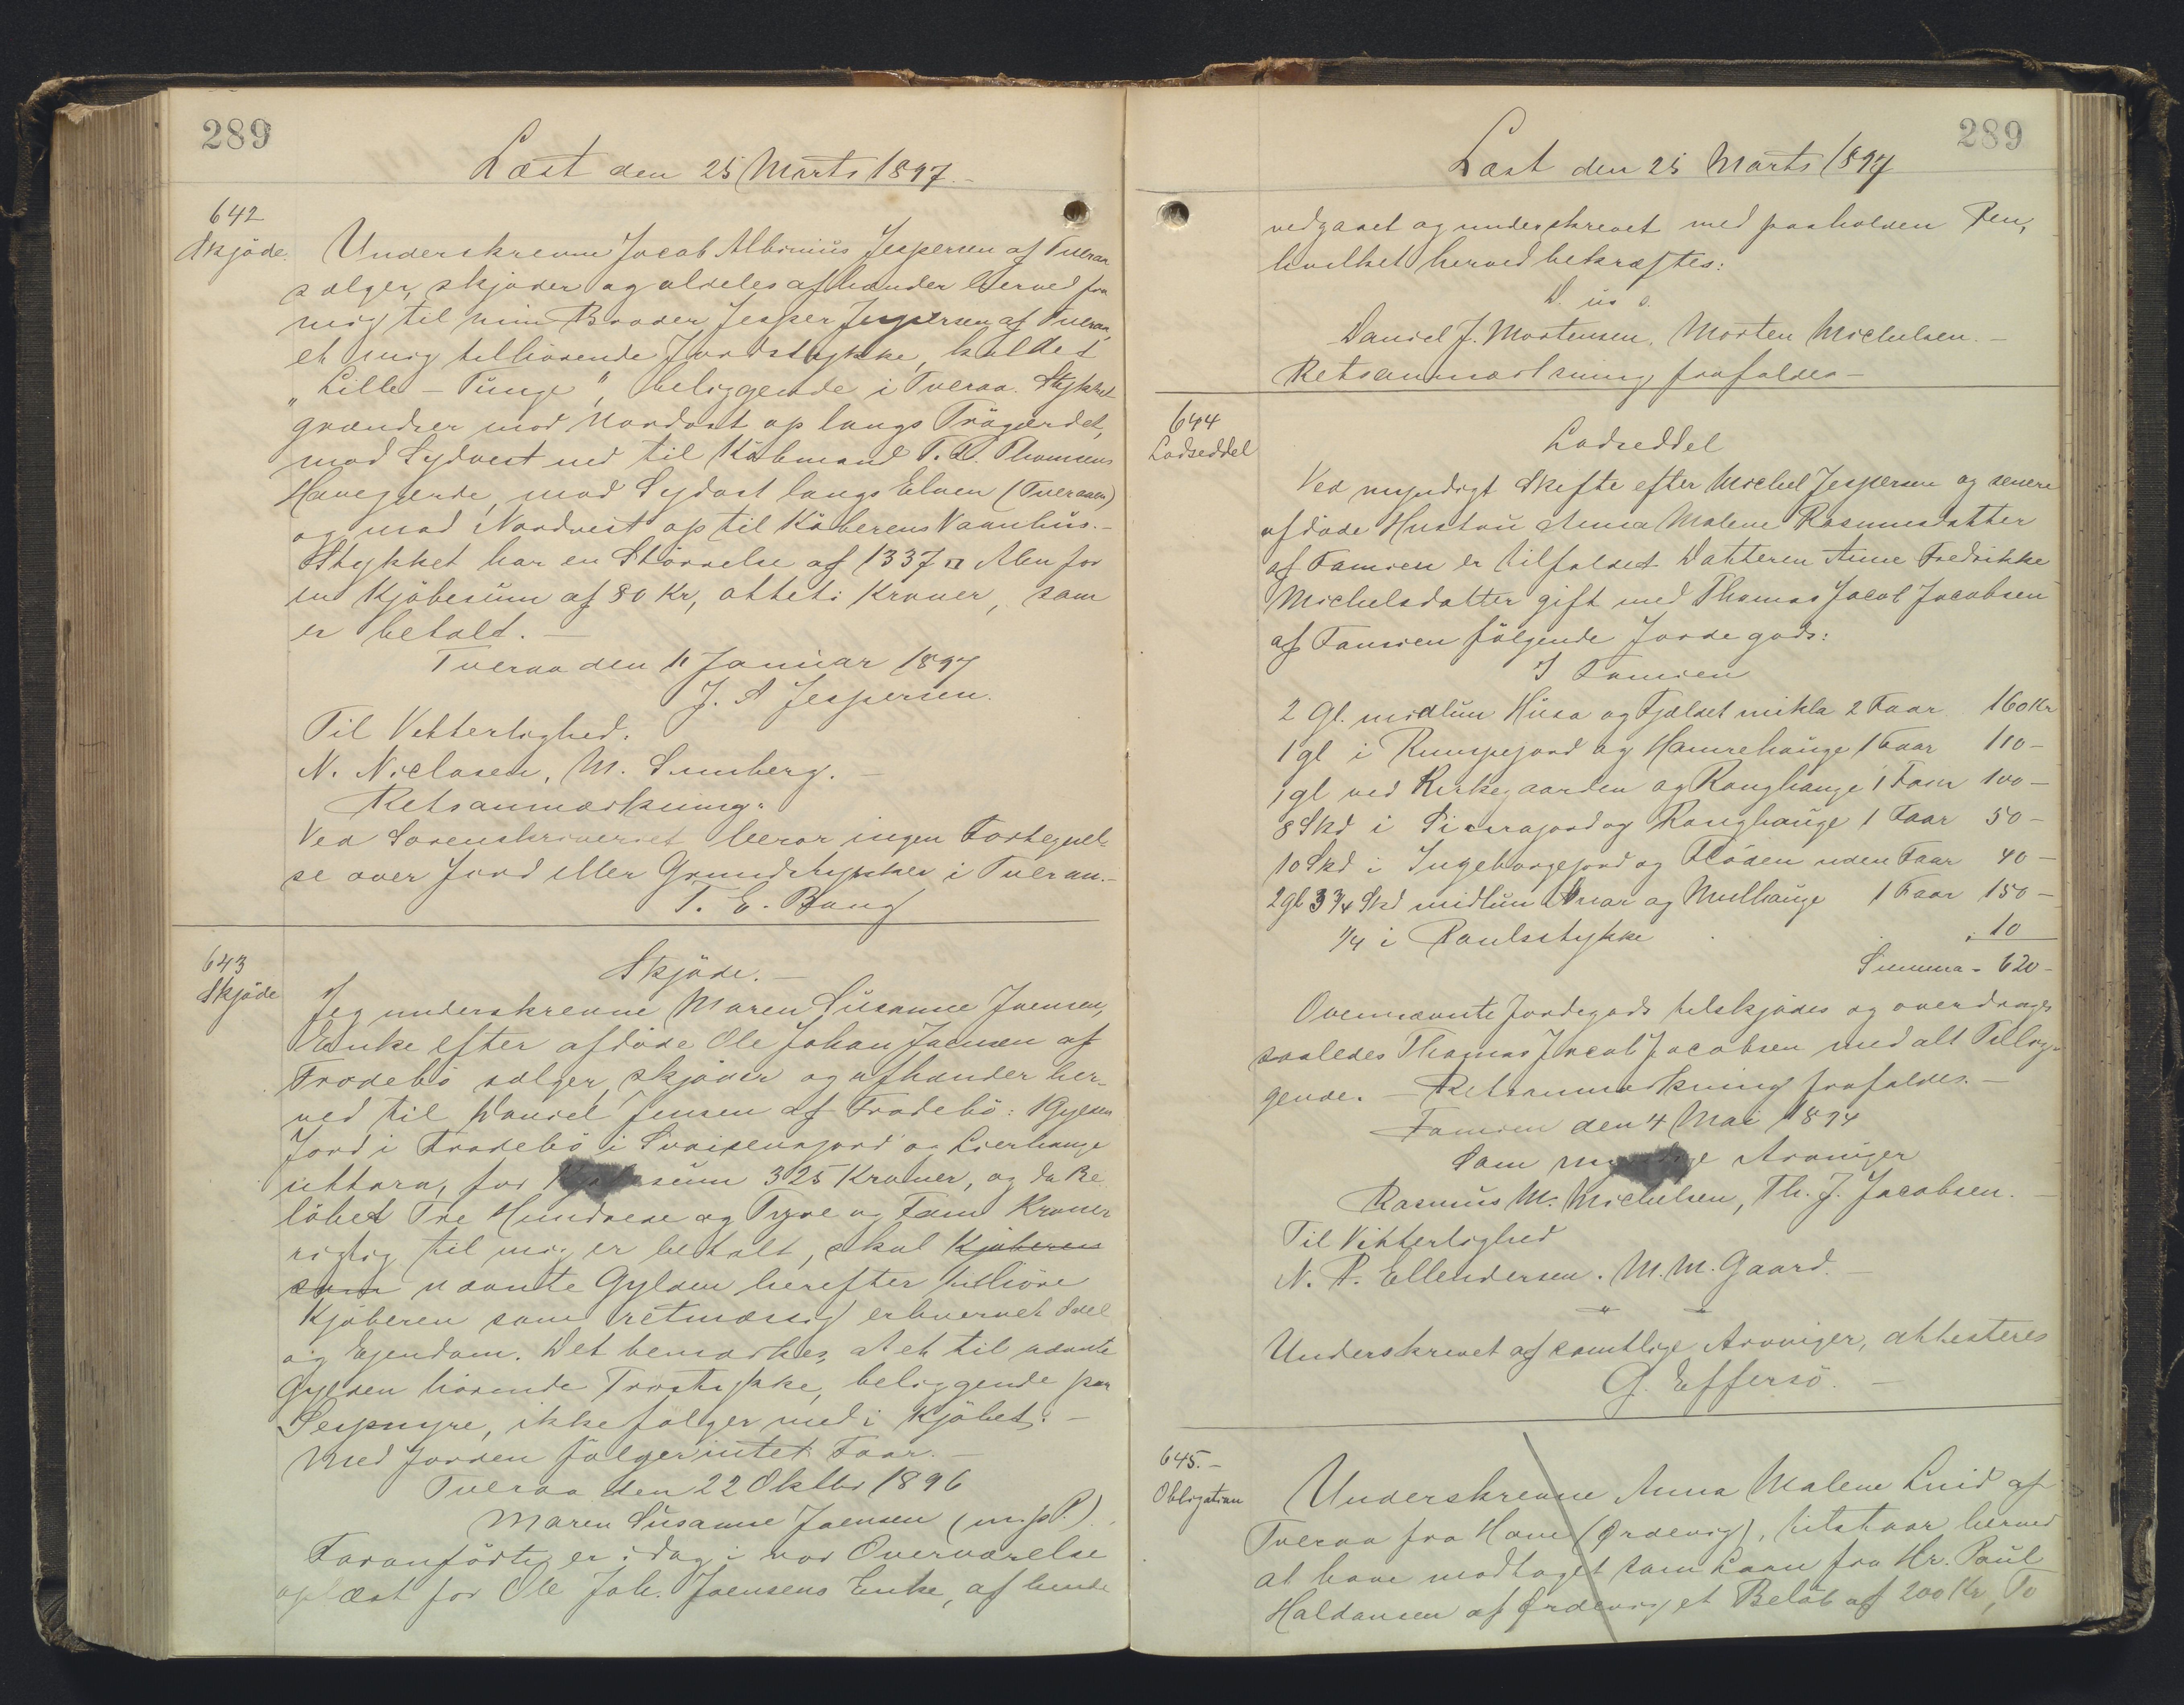 289
Læst den 25 Marts 1897.-
642
Skjøde.
Underskrevne Jacob Albinius Jespersen af Tveraa
sælger, skjøder og aldeles afhænder herved fra
mig til min Broder Jesper Jespersen af Tveraa,
et mig tilhørende Jordstykke, kaldet
"Lille-Tunge", beliggende i Tveraa. Stykket
grændser mod Nordost op langs Trøgærdet,
mod Sydvest ned til Købmand T. P. Thomsens
Havegjerde, mod Sydost langs Elven (Tveraaen)
og mod Nordvest op til Køberens Vaanhus.-
Stykket har en Størrelse af 1337 □ Alen for
en Kjøbesum af 80 Kr, otteti Kroner, som
er betalt. -
Tveraa den 11 Januar 1897
J. A Jespersen.
Til Vitterlighed:
N. Niclasen, M. Sumberg. -
Retsanmærkning:
Ved Sorenskriveriet beror ingen Fortegnel-
se over Jord eller Grundstykker i Tveraa.-
T. E. Bang
643
Skjøde
Skjøde.-
Jeg underskrevne Maren Susanne Joensen,
Enke efter afdøde Ole Johan Joensen af
Frodebø sælger, skjøder og afhænder her-
ved til Daniel Jensen af Frodebø: 1 Gylden
Jord i Frodebø i Sveisensjord og Lierhauge
uttara, for Kjøbesum 325 Kroner, og da Be-
løbet Tre Hundrede og Tyve og Fem Kroner
rigtig til mig er betalt, skal Kjøberen
som nævnte Gylden herefter tilhøre
Kjøberen som retmæssig erhvervet Odel
og Ejendom. Det bemærkes, at et til nævnte
Gylden hørende Trøstykke, beliggende paa
Seypmyre, ikke følger med i Kjøbet.-
Med Jorden følger intet Faar.-
Tveraa den 22 Oktbr 1896
Maren Susanne Joensen (m.p.P.).
Foranførte er idag i vor Overværelse
oplæst for Ole Joh. Joensens Enke, af hende
289
Læst den 25 Marts 1897
vedgaaet og underskrevet med paaholden Pen,
hvilket herved bekræftes:
D. u. s.
Daniel J. Mortensen, Morten Michelsen.-
Retsanmærkning frafaldes-
644
Lodseddel
Lodseddel
Ved myndigt Skifte efter Michel Jespersen og senere
afdøde Hustru Anna Malene Rasmusdatter
af Famien er tilfaldet Datteren Anne Fredrikke
Michelsdatter gift med Thomas Jacob Jacobsen
af Famien følgende Jordegods:
I Famien
2 Gl. midlum Husa og Fjaldet mikla 2 Faar 160 Kr
1 gl i Rumpejord og Hamrehauge 1 Faar 110 -
1 gl ved Kirkegaarden og Ranghauge 1 Faar 100 -
8 Skd i jord og Ranghauge 1 Faar 50 -
10 Skd i Ingeborgejord og Fløden uden Faar 40 -
2 gl 3 3/4 Skd midlum Aaar og Mulhauge 1 Faar 150 -
1/4 i Poulsstykke 10
Summa - 620 -
Ovennævnte Jordegods tilskjødes og overdrages
saaledes Thomas Jacob Jacobsen med alt Tillig-
gende. - Retsanmærkning frafaldes.-
Famien den 4 Mai 1894
Som myndige Arvinger
Rasmus M. Michelsen, Th. J. Jacobsen. -
Til Vitterlighed
N. P. Ellendersen. M. M. Gaard. -
" "
Underskrevet af samtlige Arvinger, attesteres
G. Effersø. -
645.-
Obligation
Underskrevne Anna Malene Lmid af
Tveraa fra Hove (Ørdevig), tilstaar herved
at have modtaget som Laan fra Hr. Poul
Haldansen af Ørdevig et Beløb af 200 Kr, To